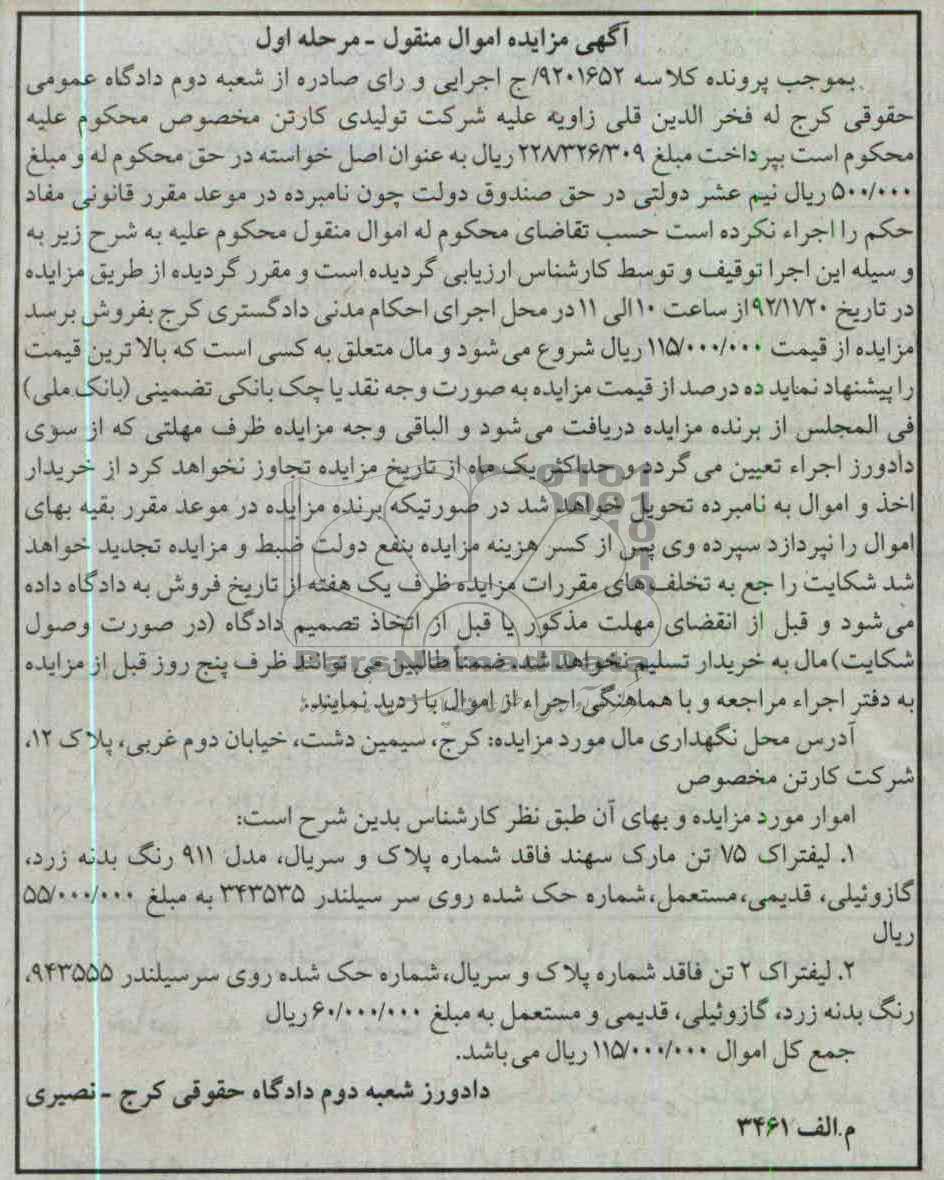 آگهی مزایده اموال منقول - مرحله اول
بموجب پرونده کلاسه ۹۲۰۱۶۵۲/ج اجرایی و رای صادره از شعبه دوم دادگاه عمومی
حقوقی کرج له فخر الدین قلی زاویه علیه شرکت تولیدی کارتن مخصوص محکوم علیه
محکوم است بپرداخت مبلغ ۲۲۸/۳۲۶/۳۰۹ ریال به عنوان اصل خواسته در حق محکوم له و مبلغ
۵۰۰/۰۰۰ ریال نیم عشر دولتی در حق صندوق دولت چون نامبرده در موعد مقرر قانونی مفاد
حکم را اجراء نکرده است حسب تقاضای محکوم له اموال منقول محکوم علیه به شرح زیر به
وسیله این اجرا توقیف و توسط کارشناس ارزیابی گردیده است و مقرر گردیده از طریق مزایده
در تاریخ ۹۲/۱۱/۲۰ از ساعت ۱۰ الی ۱۱ در محل اجرای احکام مدنی دادگستری کرج بفروش برسد
مزایده از قیمت ۱۱۵/۰۰۰/۰۰۰ ریال شروع می شود و مال متعلق به کسی است که بالاترین قیمت
را پیشنهاد نماید ده درصد از قیمت مزایده به صورت وجه نقد یا چک بانکی تضمینی (بانک ملی)
فی المجلس از برنده مزایده دریافت می شود و الباقی وجه مزایده ظرف مهلتی که از سوی
دادورز اجراء تعیین می گردد و حداکثر یک ماه از تاریخ مزایده تجاوز نخواهد کرد از خریدار
اخذ و اموال به نامبرده تحویل خواهد شد در صورتیکه برنده مزایده در موعد مقرر بقیه بهای
اموال را نپردازد سپرده وی پس از کسر هزینه مزایده بنفع دولت ضبط و مزایده تجدید خواهد
شد شکایت راجع به تخلف های مقررات مزایده ظرف یک هفته از تاریخ فروش به دادگاه داده
می شود و قبل از انقضای مهلت مذکور یا قبل از اتخاذ تصمیم دادگاه (در صورت وصول
شکایت) مال به خریدار تسلیم نخواهد شد. ضمناً طالبین می توانند ظرف پنج روز قبل از مزایده
به دفتر اجراء مراجعه و با هماهنگی اجراء از اموال بازدید نمایند.
آدرس محل نگهداری مال مورد مزایده: کرج، سیمین دشت، خیابان دوم غربی، پلاک ۱۲،
شرکت کارتن مخصوص
اموار مورد مزایده و بهای آن طبق نظر کارشناس بدین شرح است:
۱. لیفتراک ۷/۵ تن مارک سهند فاقد شماره پلاک و سریال، مدل ۹۱۱ رنگ بدنه زرد،
گازوئیلی، قدیمی، مستعمل، شماره حک شده روی سر سیلندر ۳۴۳۵۳۵ به مبلغ ۵۵/۰۰۰/۰۰۰
ریال
۲. لیفتراک ۲ تن فاقد شماره پلاک و سریال، شماره حک شده روی سرسیلندر ۹۴۳۵۵۵،
رنگ بدنه زرد، گازوئیلی، قدیمی و مستعمل به مبلغ ۶۰/۰۰۰/۰۰۰ ریال
جمع کل اموال ۱۱۵/۰۰۰/۰۰۰ ریال می باشد.
دادورز شعبه دوم دادگاه حقوقی کرج - نصیری
م.الف ۳۴۶۱
ParsNamadData